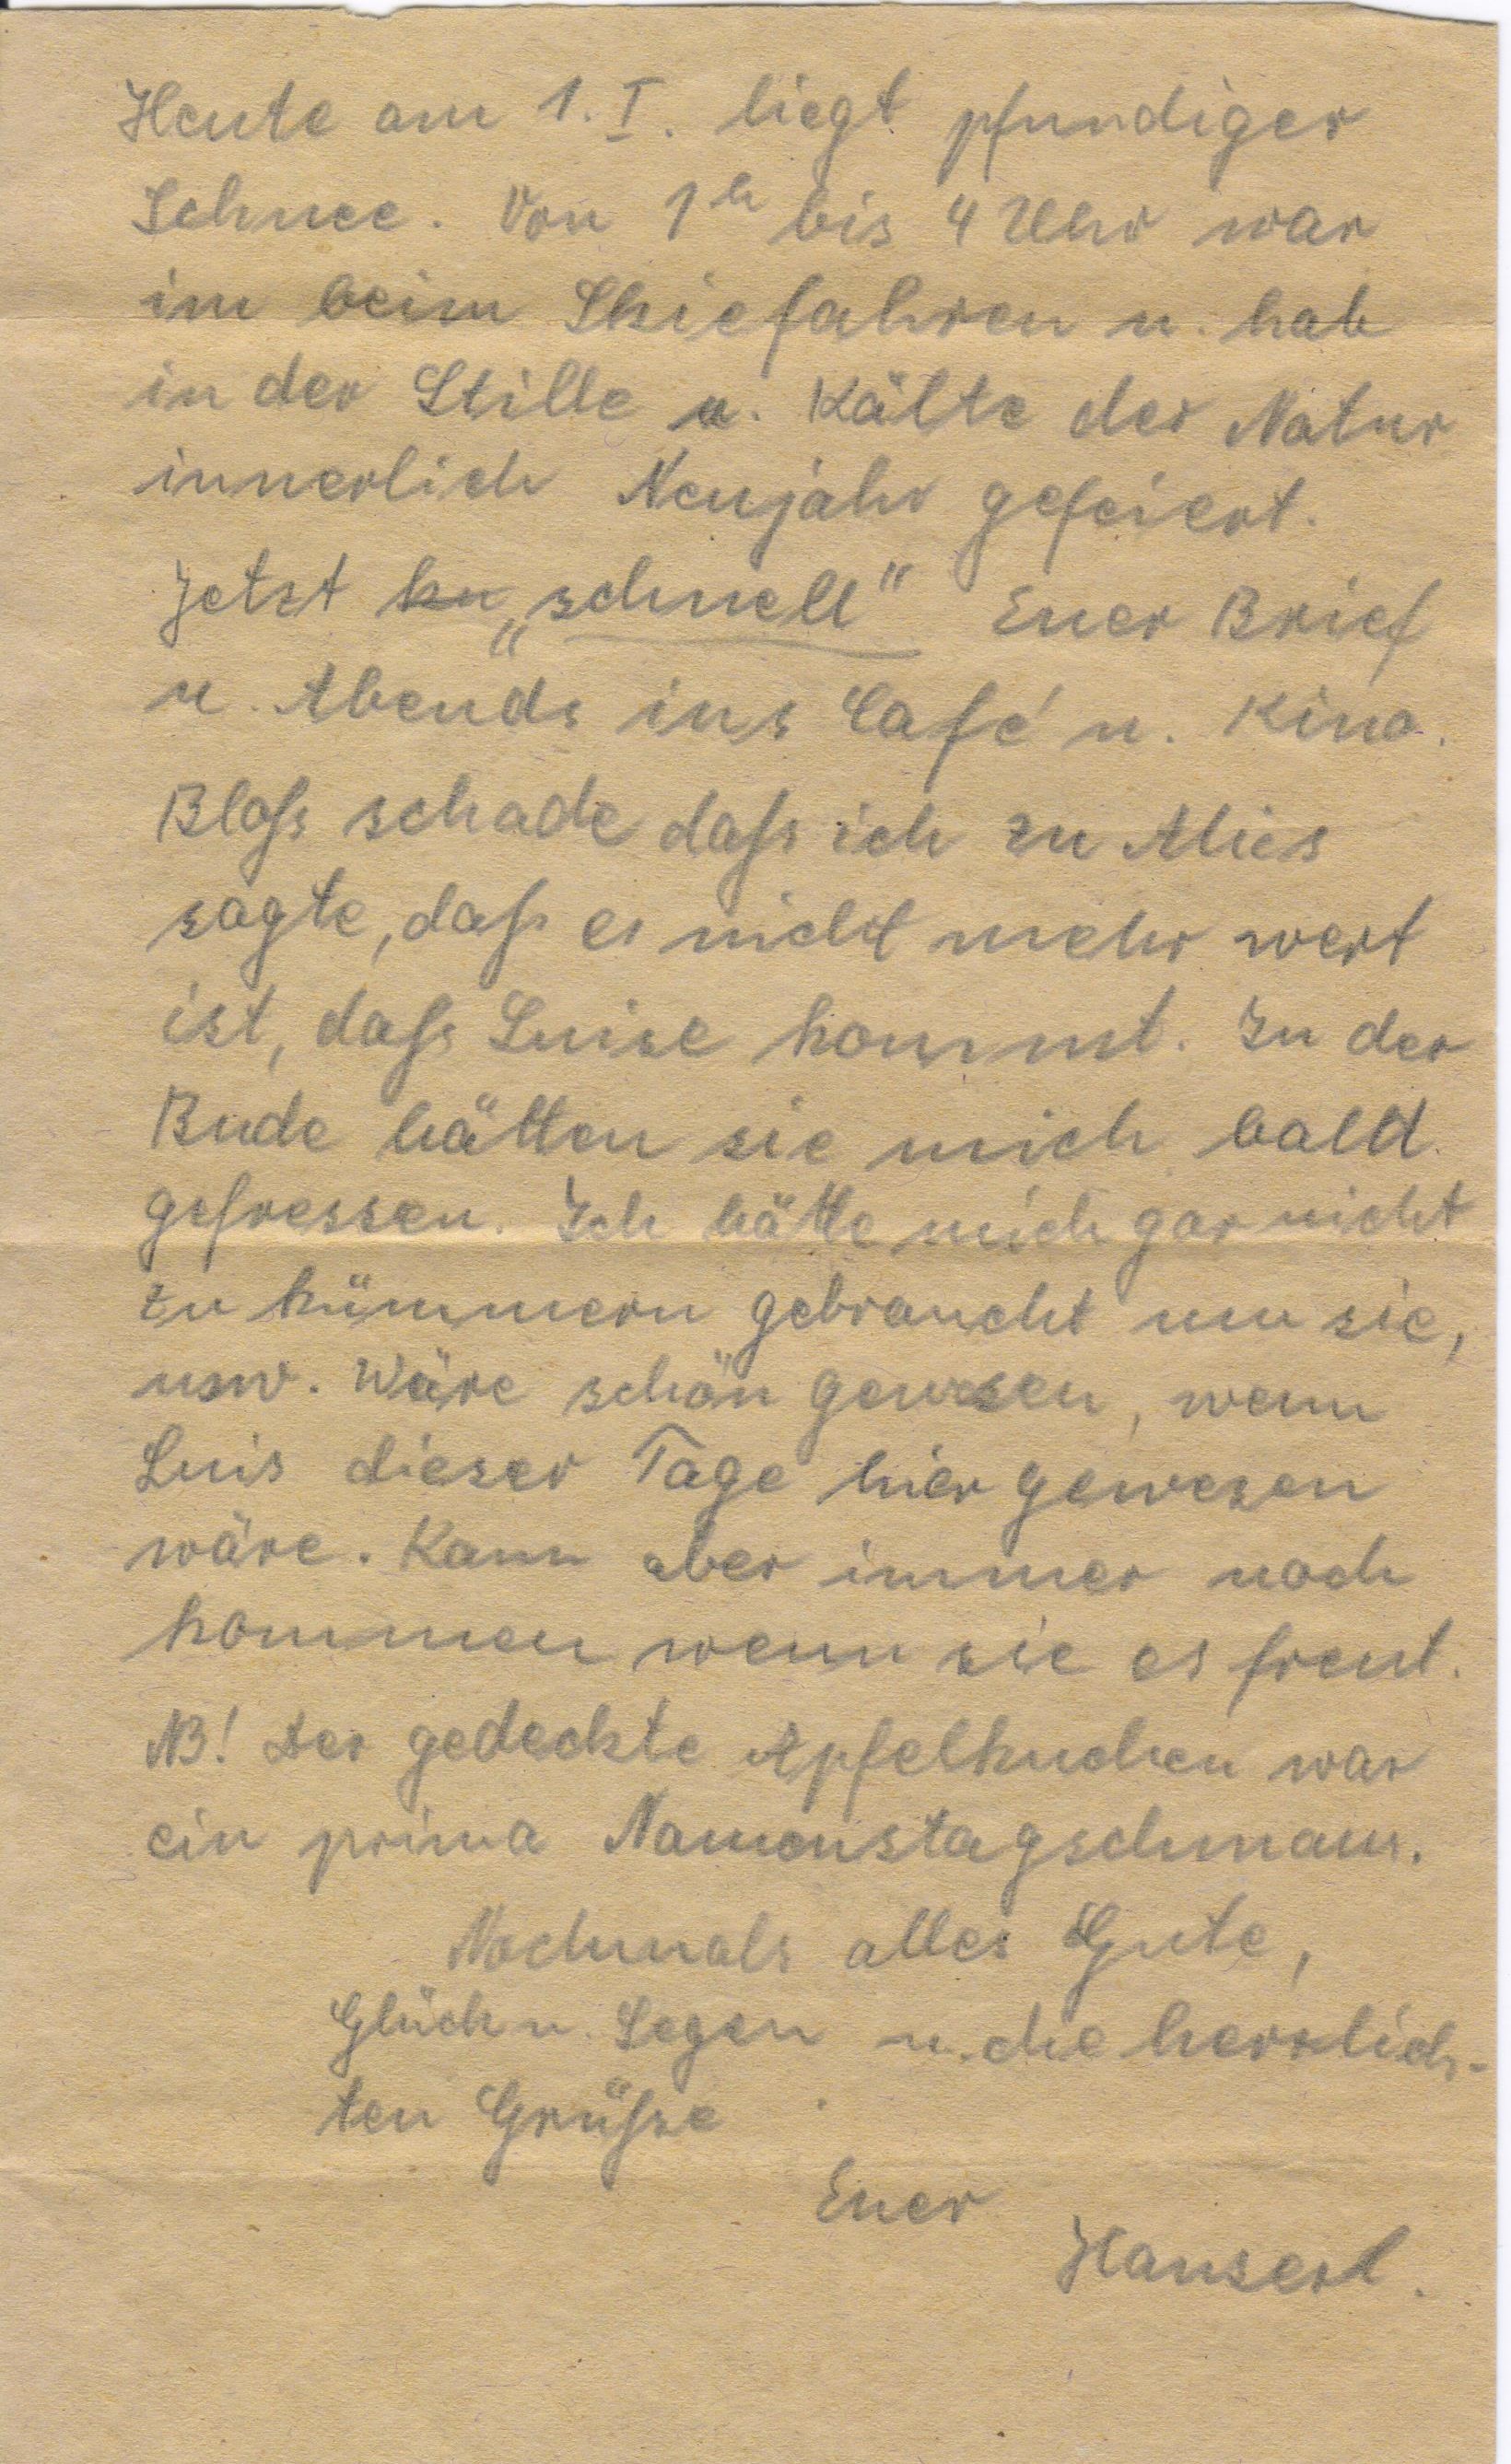 Heute am 1. I. liegt pfundiger
Schnee. Von 1h bis 4 Uhr war
im beim Skiefahren u. hab
in der Stille u. Kälte der Natur
innerlich Neujahr gefeiert.
Jetzt „schnell“ Euer Brief
u. Abends ins Café u. Kino.
Bloß schade daß ich zu Mies
sagte, daß es nicht mehr wert
ist, daß Luise kommt. In der
Bude hätten sie mich bald
gefressen. Ich hätte mich gar nicht
zu kümmern gebraucht um sie,
usw. Wäre schön gewesen, wenn
Luis dieser Tage hier gewesen
wäre. Kann aber immer noch
kommen wenn sie es freut.
NB! Der gedeckte Apfelkuchen war
ein prima Namenstagschmaus.
Nochmals alles Gute,
Glück u. Segen u. die herzlich-
ten Grüße
Euer
Hanserl.